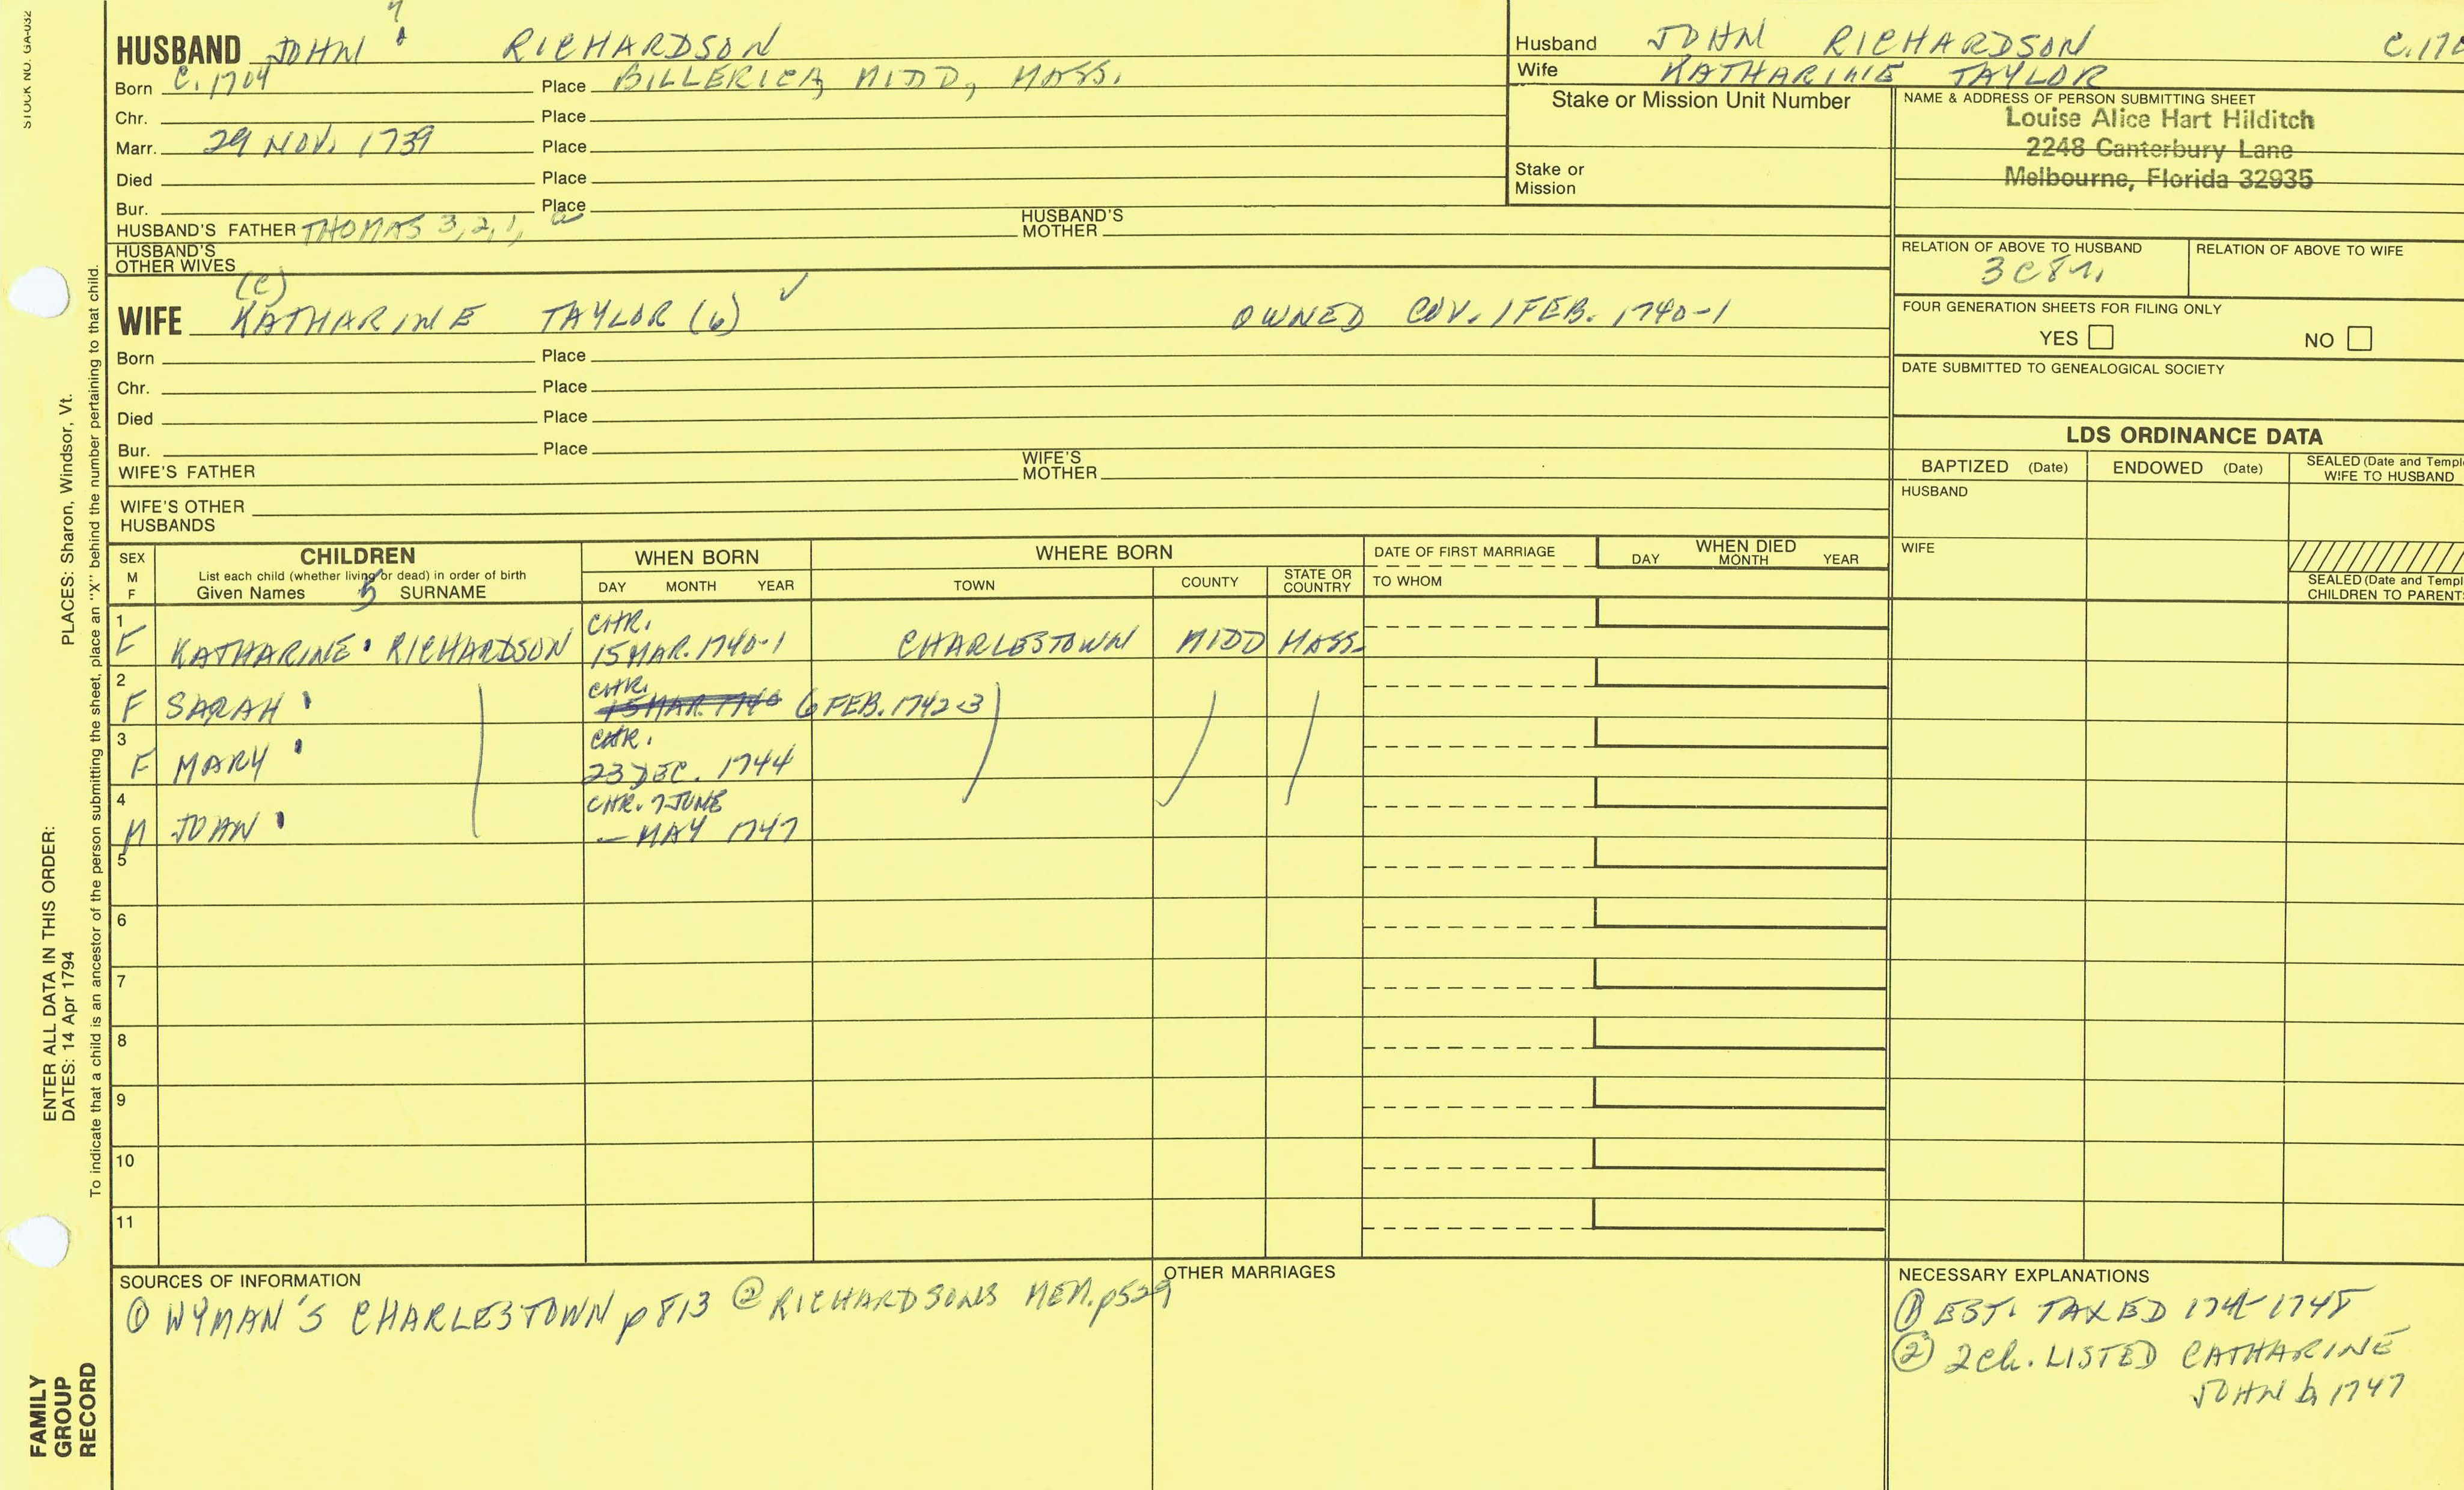 STOCK NO. GA-032
PLACES: Sharon, Windsor, Vt.
ENTER ALL DATA IN THIS ORDER:
DATES: 14 Apr 1794
To indicate that a child is an ancestor of the person submitting the sheet, place an "X" behind the number pertaining to that child.
FAMILY
GROUP
RECORD
4
HUSBAND JOHN RICHARDSON
Born C. 1704 Place BILLERICA, MIDD, MASS.
Chr. Place
Marr. 29 NOV. 1739 Place
Died Place
Bur. Place
HUSBAND'S FATHER THOMAS 3, 2, 1, a HUSBAND'S MOTHER
HUSBAND'S
OTHER WIVES
(C)
WIFE KATHARINE TAYLOR (6) ✓ OWNED COV. 1 FEB. 1740-1
Born Place
Chr. Place
Died Place
Bur. Place
WIFE'S FATHER WIFE'S MOTHER
WIFE'S OTHER
HUSBANDS
Husband JOHN RICHARDSON C. 170
Wife KATHARINE TAYLOR
Stake or Mission Unit Number
Stake or
Mission
NAME & ADDRESS OF PERSON SUBMITTING SHEET
Louise Alice Hart Hilditch
2248 Canterbury Lane
Melbourne, Florida 32935
RELATION OF ABOVE TO HUSBAND RELATION OF ABOVE TO WIFE
3C8r.
FOUR GENERATION SHEETS FOR FILING ONLY
YES NO
DATE SUBMITTED TO GENEALOGICAL SOCIETY
LDS ORDINANCE DATA
BAPTIZED (Date) ENDOWED (Date) SEALED (Date and Templ
WIFE TO HUSBAND
HUSBAND
WIFE
SEALED (Date and Templ
CHILDREN TO PARENT
SEX
M
F
CHILDREN
List each child (whether living or dead) in order of birth
Given Names 5 SURNAME
WHEN BORN
DAY MONTH YEAR
WHERE BORN
TOWN COUNTY STATE OR COUNTRY
DATE OF FIRST MARRIAGE
TO WHOM
WHEN DIED
DAY MONTH YEAR
1 CHR.
F KATHARINE RICHARDSON 15 MAR. 1740-1 CHARLESTOWN MIDD MASS.
2 CHR.
F SARAH 15 MAR. 1740 6 FEB. 1742-3
3 CHR.
F MARY 23 DEC. 1744
4 CHR. 7 JUNE
M JOHN — MAY 1747
5
6
7
8
9
10
11
SOURCES OF INFORMATION
① WYMAN'S CHARLESTOWN p 813 ② RICHARDSONS MEM. p 529
OTHER MARRIAGES
NECESSARY EXPLANATIONS
① EST. TAXED 1748
② 2 ch. LISTED CATHARINE
JOHN b 1747